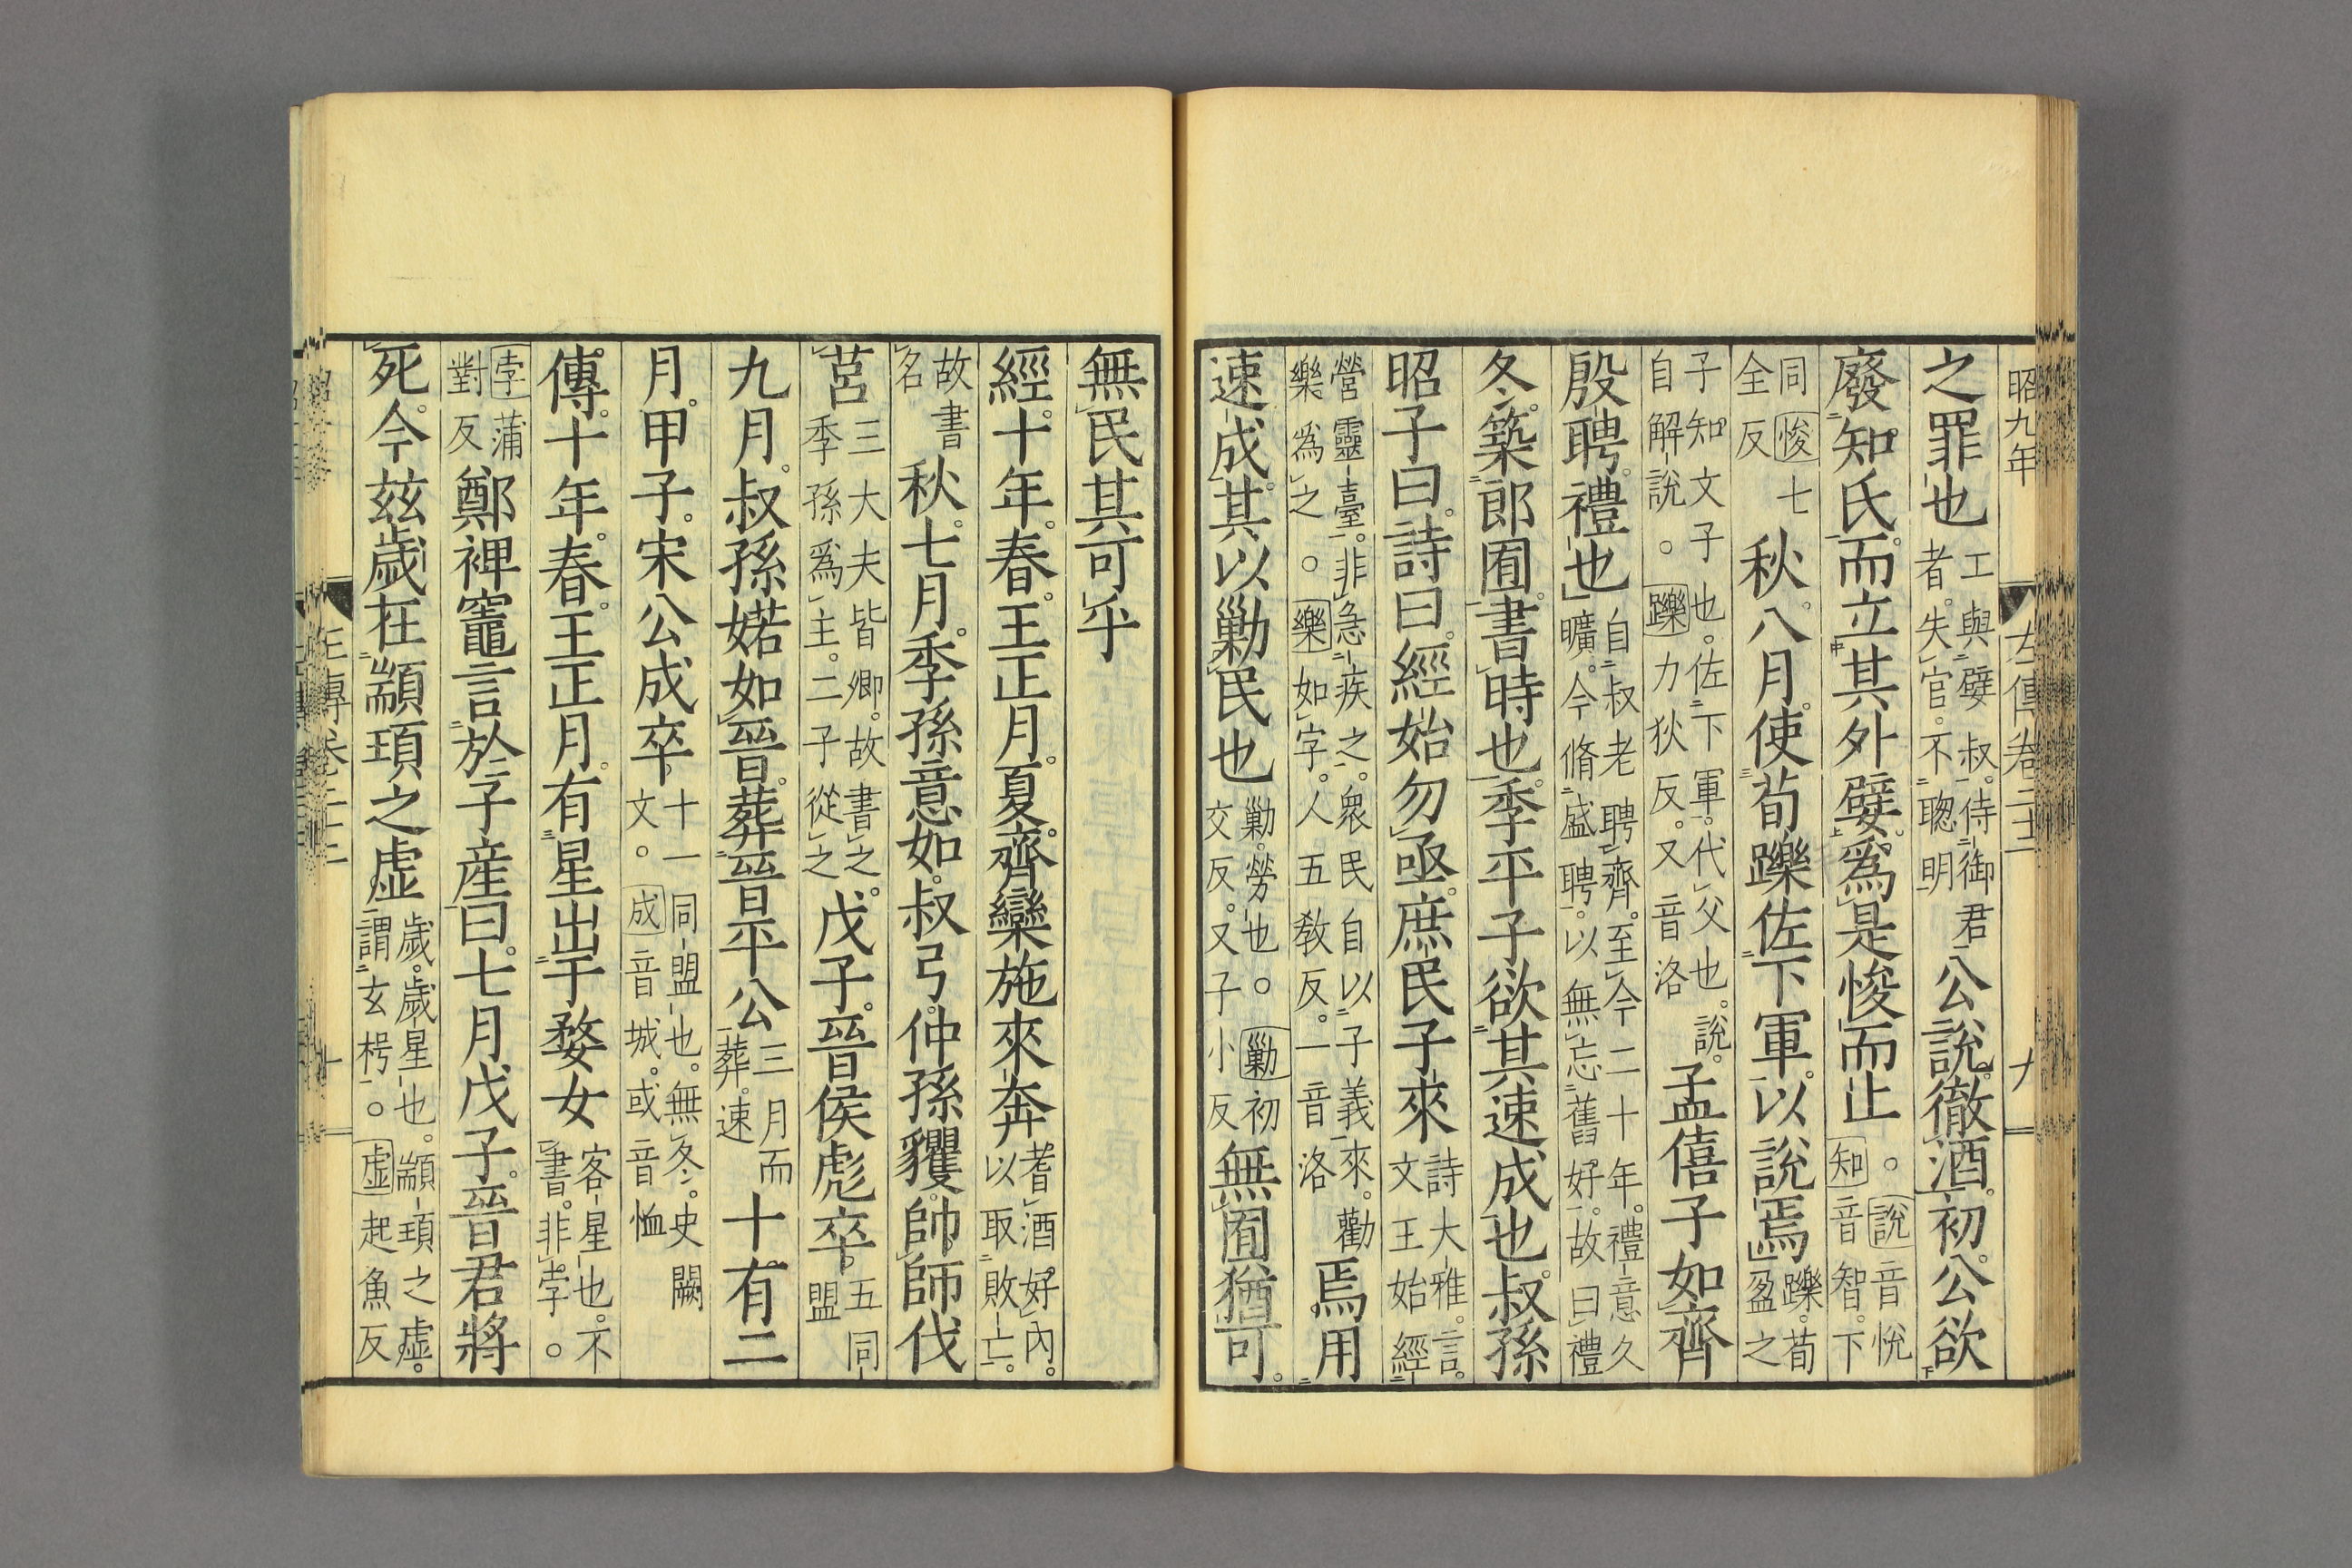 昭九年
左傳卷二十二
之罪也工與嬖叔侍御君者失官不聰明公說徹酒初公欲
廢知氏而立其外嬖爲是悛而止。說音悅知音智下
同悛七全反秋八月使荀躒佐下軍以說焉躒荀盈之
子知文子也佐下軍代父也說自解說。躒力狄反又音洛孟僖子如齊
殷聘禮也自叔老聘齊至今二十年禮意久曠今脩盛聘以無忘舊好故曰禮
冬築郎囿書時也季平子欲其速成也叔孫
昭子曰詩曰經始勿亟庶民子來詩大雅言文王始經
營靈臺非急疾之衆民自以子義來勸樂爲之。樂如字人五教反一音洛焉用
速成其以勦民也勦勞也。勦初交反又子小反無囿猶可
無民其可乎
經十年春王正月夏齊欒施來奔耆酒好內以取敗亡
故書名秋七月季孫意如叔弓仲孫貜帥師伐
莒三大夫皆卿故書之季孫爲主二子從之戊子晉侯彪卒五同盟
九月叔孫婼如晉葬晉平公三月而葬速十有二
月甲子宋公成卒十一同盟也無冬史闕文。成音城或音恤
傳十年春王正月有星出于婺女客星也不書非孛。
孛蒲對反鄭裨竈言於子產曰七月戊子晉君將
死今茲歲在顓頊之虛歲歲星也顓頊之虛謂玄枵。虛起魚反